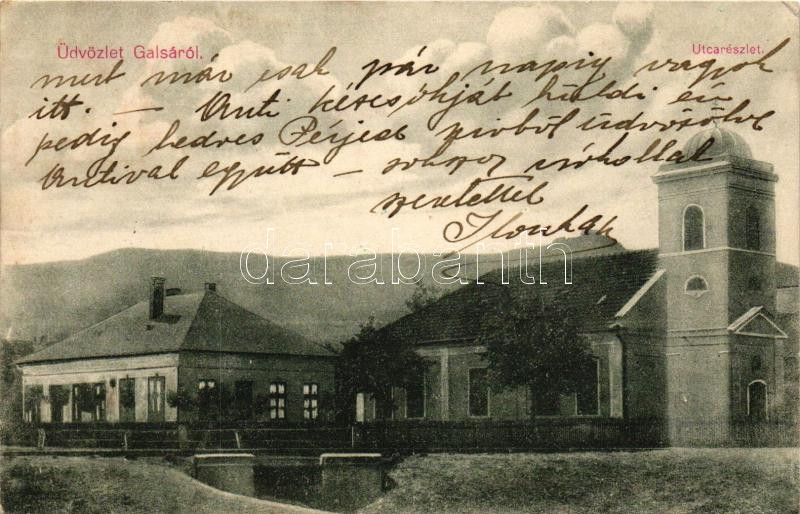 Üdvözlet Galsáról.
Utcarészlet.
mert már csak pár napig vagyok
itt. — Anti kézcsókját küldi én
pedig kedves szivből üdvözölve
Antival együtt — sokszor
szeretettel
darabanth